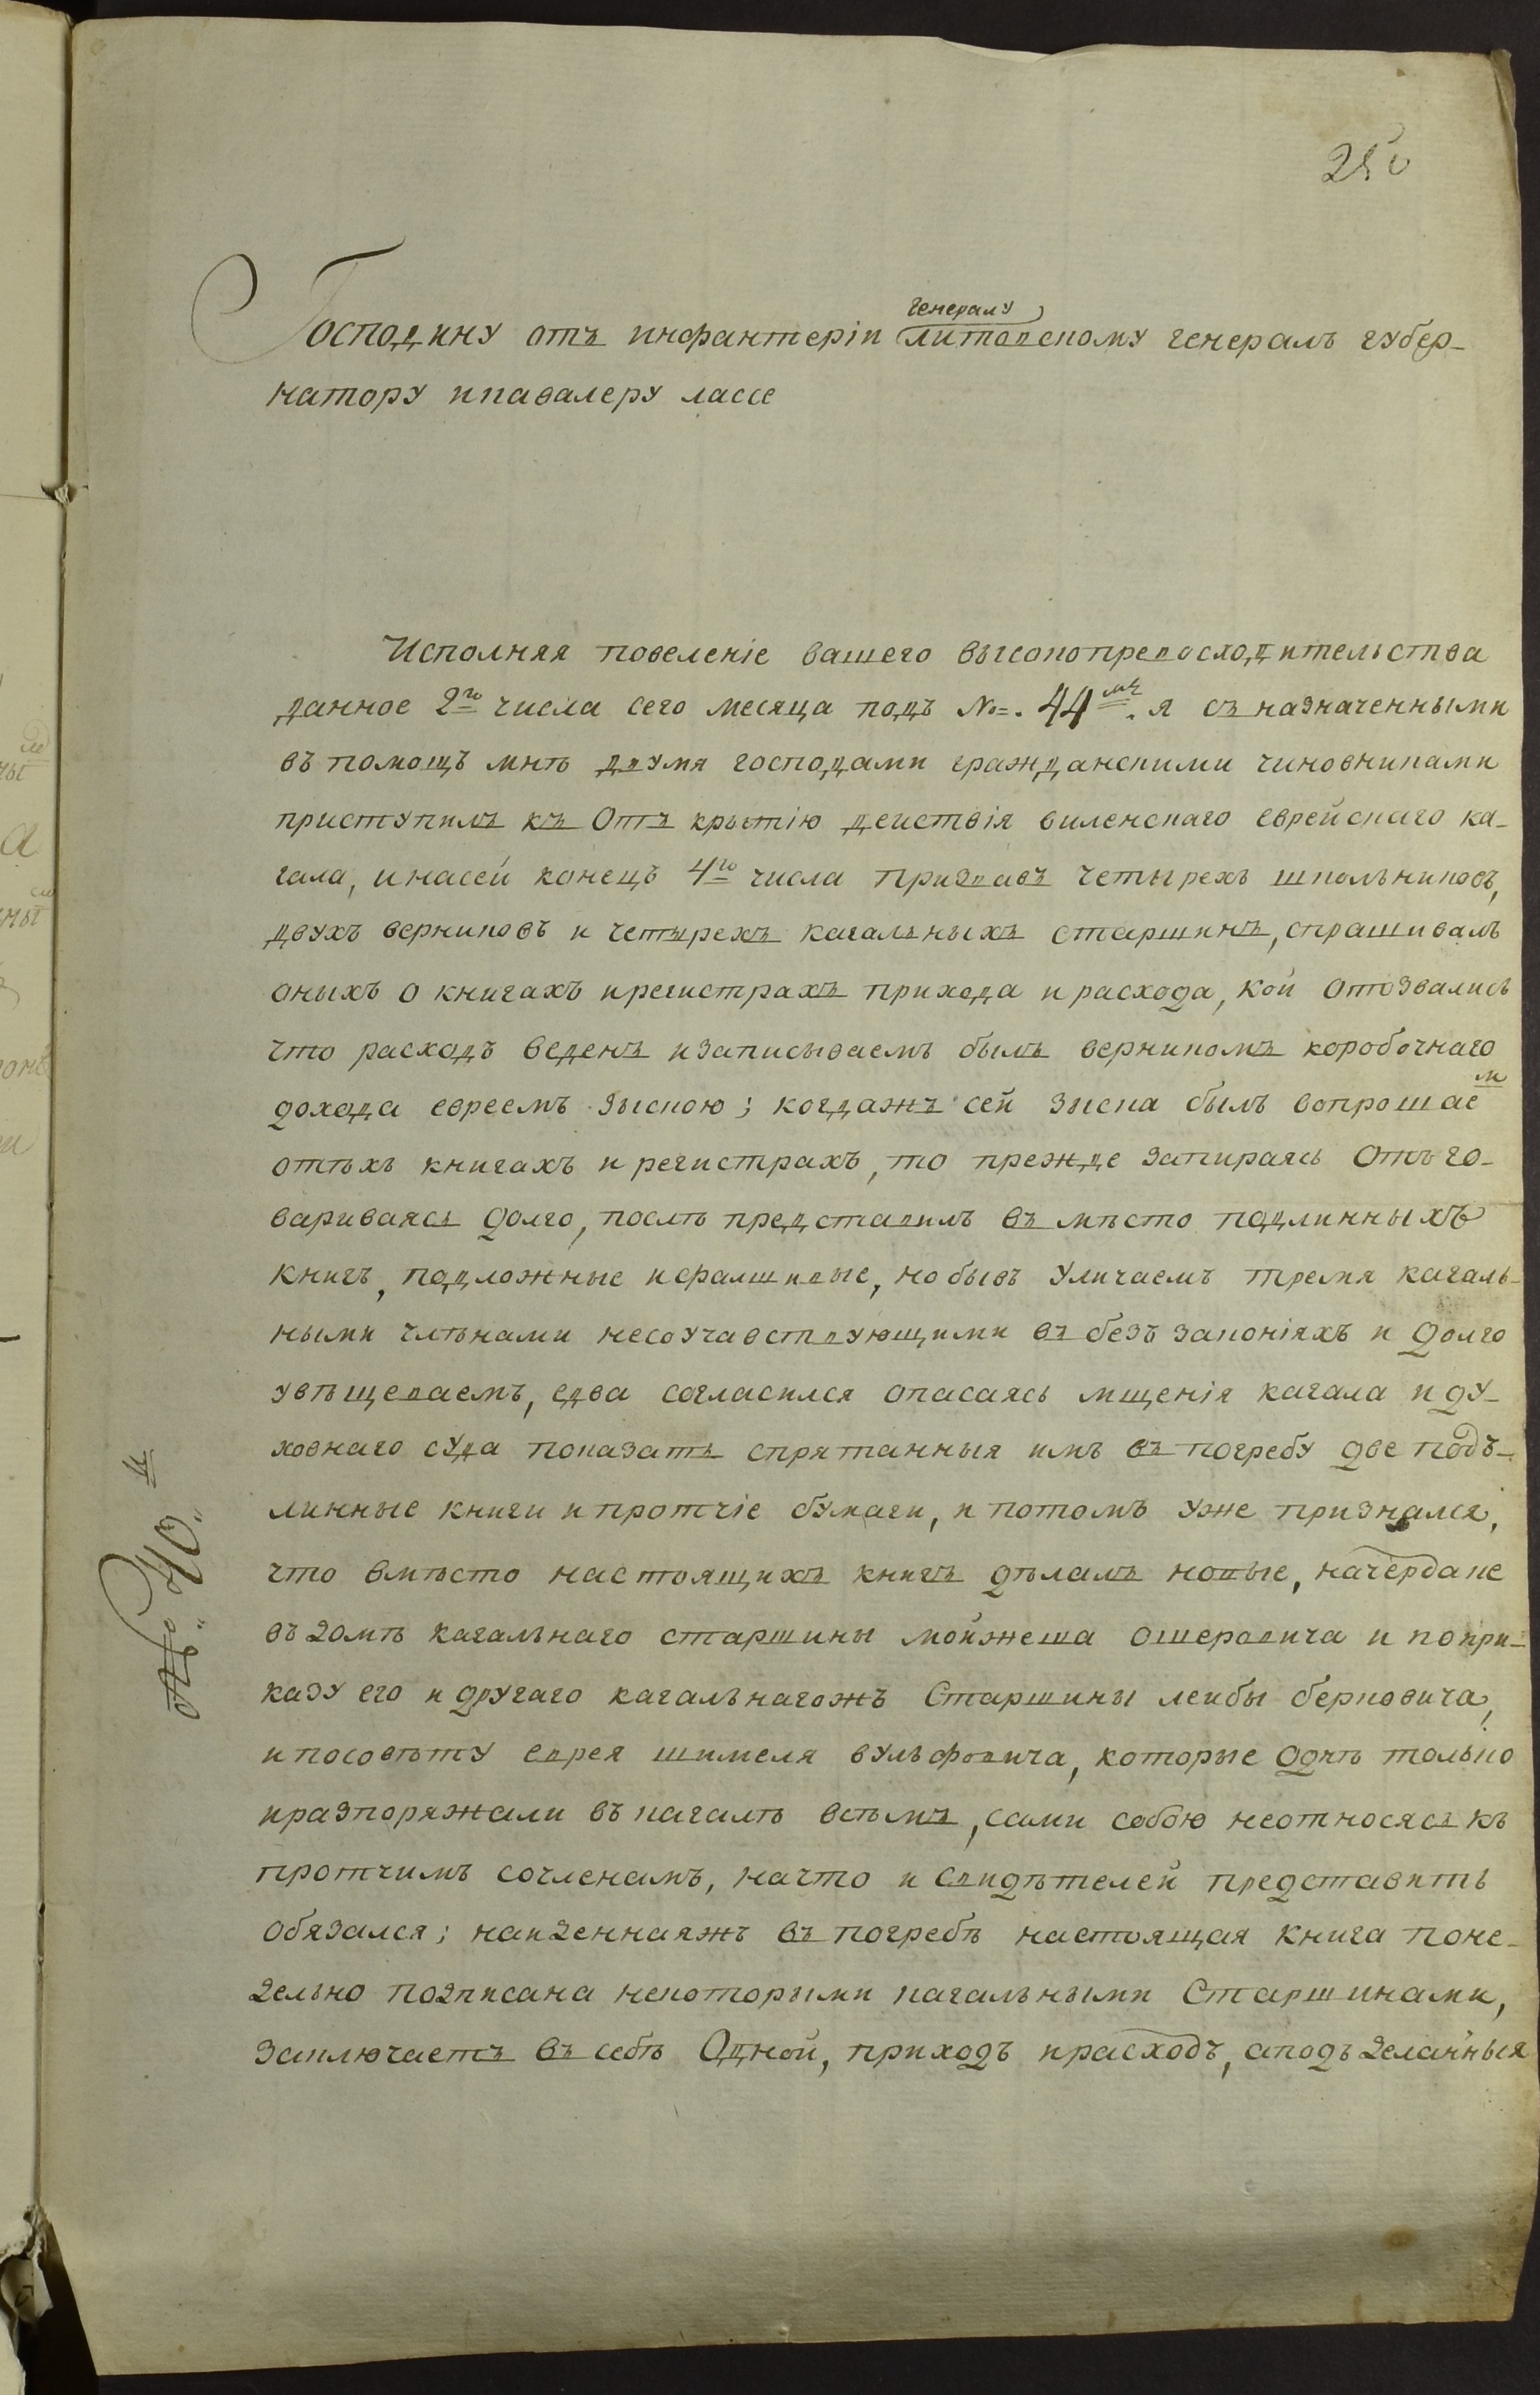 250
генералу
Господину отъ инфантеріи литовскому генералъ губер-
натору икавалеру лассе
Исполняя повеленіе вашего высокопревосходительства
данное 2го числа сего месяца подъ №=. 44мъ. я съ назначенными
въ помощъ мнѣ двумя господами гражданскими чиновниками
приступилъ къ Отъ крытію деиствія виленскаго еврейскаго ка-
гала, инасей конецъ 4го числа призвавъ четырехъ школьниковъ,
двухъ верниковъ и четырехъ кагальныхъ старшинъ, спрашивалъ
оныхъ о книгахъ ирегистрахъ прихода и расхода, кои отозвались
что расходъ веденъ изаписываемъ былъ верникомъ коробочнаго
дохода евреемъ Зыскою; когдажъ сей зыска былъ вопрошаем
отѣхъ книгахъ и регистрахъ, то прежде запираясь Отъго-
вариваясь долго, послѣ представилъ въ мѣсто подлинныхъ
книгъ, подложные ифалшивые, но бывъ уличаемъ тремя кагаль-
ными члѣнами несоучавствующими въ безъ законіяхъ и долго
увѣщеваемъ, едва согласился опасаясь мщенія кагала и ду-
ховнаго суда показать спрятанныя имъ въ погребу две подъ-
линные книги и протчіе бумаги, и потомъ уже признался,
что вмѣсто настоящихъ книгъ дѣлалъ новые, начердаке
въ домѣ кагальнаго старшины мойжеша ошеровича и попри-
казу его и другаго кагальнагожъ Старшины леибы берковича,
ипосовѣту еврея шимеля вульфовича, которые однѣ только
иразпоряжали въ кагалѣ всѣмъ, сами собою неотносясь къ
протчимъ сочленамъ, начто и свидѣтелей представить
обязался; наиденнаяжъ въ погребѣ настоящая книга поне-
дельно подписана некоторыми кагальными Старшинами,
заключаетъ въ себѣ Одной, приходъ ирасходъ, аподъделанныя
№. 40.й